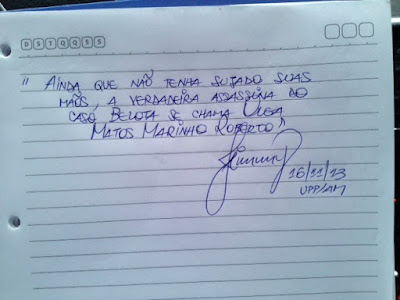 D S T Q Q S S
" AINDA QUE NÃO TENHA SUJADO SUAS
MÃOS, A VERDADEIRA ASSASSINA DO
CASO BELOTA SE CHAMA OLGA
MATOS MARINHO ROBERTO"
16/11/13
UPP/AM